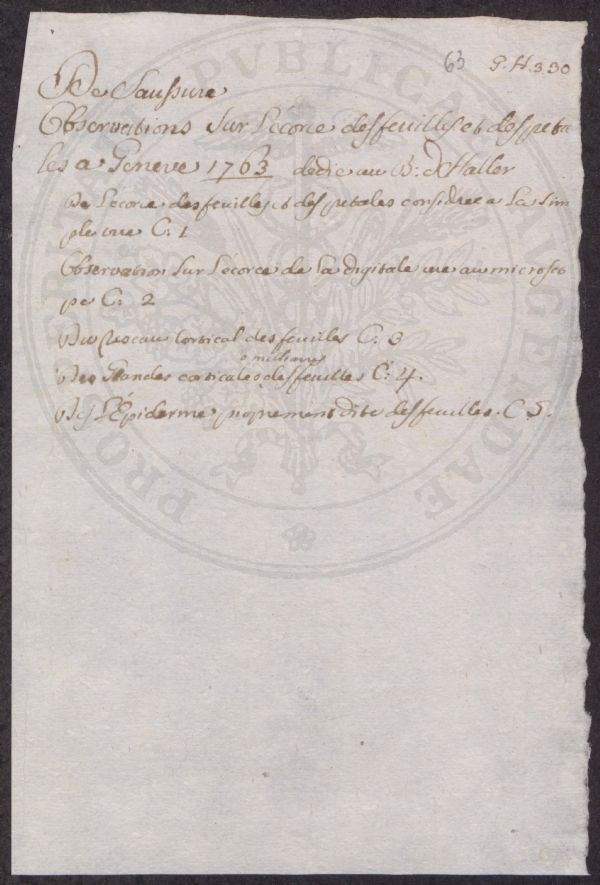 63 G. H. 330
De Saussure
Observations sur l'écorce des feuilles et des peta
les a Geneve 1763 dedie au B: d'Haller
De l'ecorce des feuilles et des petales considree a la sim
ple vue C. 1
Observation sur l'écorce de la digitale vue au microsco
pe C: 2
Du Reseau cortical des feuilles C: 3
o miliaires
Des Glandes corticales des feuilles C: 4.
De l'Épiderme proprement dite des feuilles. C 5.
PUBLICAE
AUGENDAE